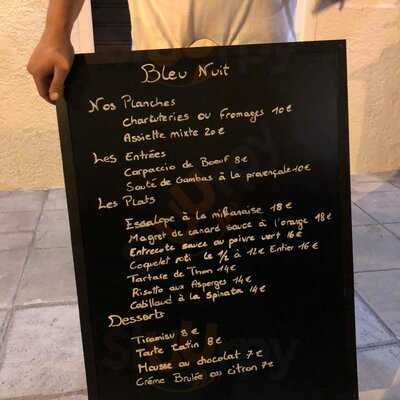 Bleu Nuit
Nos Planches
Charcuteries ou Fromages 10€
Assiette mixte 20€
Les Entrées
Carpaccio de Boeuf 8€
Sauté de Gambas à la provençale 10€
Les Plats
Escalope à la milanaise 18€
Magret de canard sauce à l'orange 18€
Entrecote sauce au poivre vert 16€
Coquelet roti le 1/2 à 12€ Entier 16€
Tartare de Thon 14€
Risotto aux Asperges 14€
Cabillaud à la Spinata 14€
Desserts
Tiramisu 8€
Tarte Tatin 8€
Mousse au chocolat 7€
Crème Brulée au citron 7€